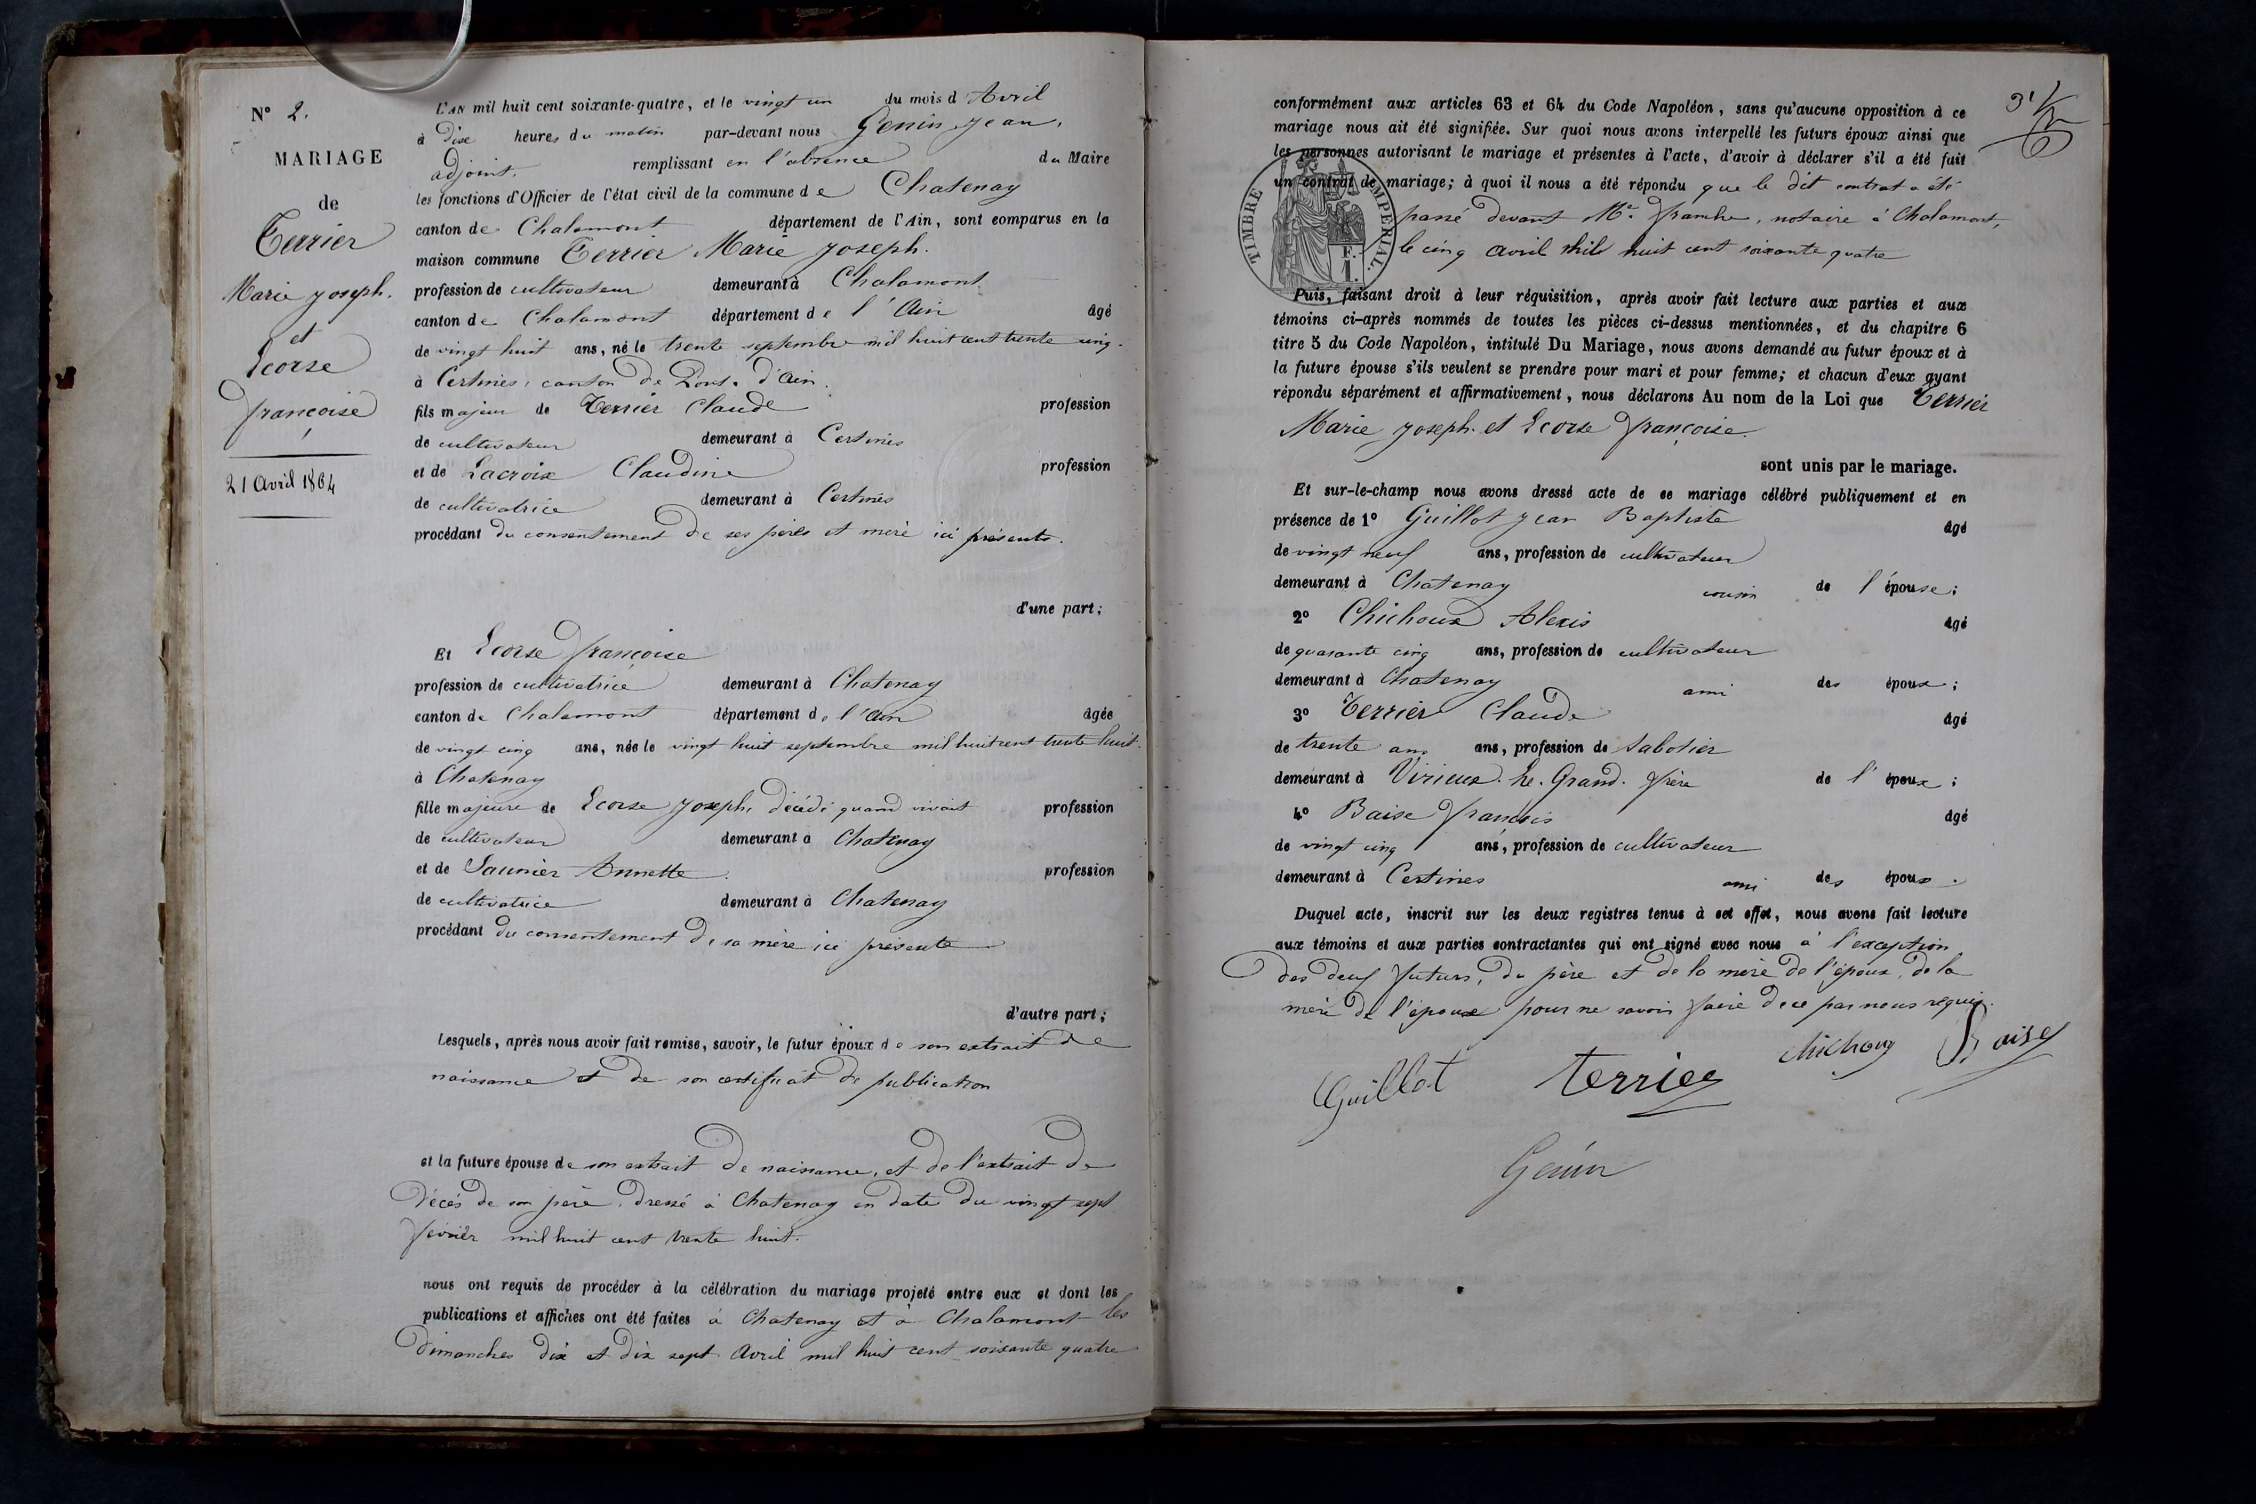 N° 2.
MARIAGE
de
Terrier
Marie Joseph.
et
Ecorse
françoise
21 Avril 1864
L'AN mil huit cent soixante-quatre, et le vingt un du mois d Avril
à dix heures du matin par-devant nous Genin Jean,
adjoint. remplissant en l'absence du Maire
les fonctions d'Officier de l'état civil de la commune de Chatenay
canton de Chalamont département de l'Ain, sont comparus en la
maison commune Terrier Marie Joseph.
profession de cultivateur demeurant à Chalamont
canton de Chalamont département de l'Ain âgé
de vingt huit ans, né le trente septembre mil huit cent trente cinq.
à Certines, canton de Pont-d'Ain.
fils majeur de Terrier Claude profession
de cultivateur demeurant à Certines
et de Lacroix Claudine profession
de cultivatrice demeurant à Certines
procédant du consentement de ses père et mère ici présents.
d'une part;
Et Ecorse françoise
profession de cultivatrice demeurant à Chatenay
canton de Chalamont département de l'Ain âgée
de vingt cinq ans, née le vingt huit septembre mil huit cent trente huit.
à Chatenay
fille majeure de Ecorse Joseph, décédé quand vivait profession
de cultivateur demeurant à Chatenay
et de Saunier Annette. profession
de cultivatrice demeurant à Chatenay
procédant du consentement de sa mère ici présente
d'autre part;
Lesquels, après nous avoir fait remise, savoir, le futur époux de son extrait de
naissance et de son certificat de publication
et la future épouse de son extrait de naissance, et de l'extrait de
décès de son père, dressé à Chatenay en date du vingt sept
février mil huit cent trente huit.
nous ont requis de procéder à la célébration du mariage projeté entre eux et dont les
publications et affiches ont été faites à Chatenay et à Chalamont les
dimanches dix et dix sept Avril mil huit cent soixante quatre
conformément aux articles 63 et 64 du Code Napoléon, sans qu'aucune opposition à ce
mariage nous ait été signifiée. Sur quoi nous avons interpellé les futurs époux ainsi que
les personnes autorisant le mariage et présentes à l'acte, d'avoir à déclarer s'il a été fait
un contrat de mariage; à quoi il nous a été répondu que le dit contrat a été
passé devant Me. , notaire à Chalamont,
le cinq avril mil huit cent soixante quatre
TIMBRE IMPERIAL.
F.
1.
Puis, faisant droit à leur réquisition, après avoir fait lecture aux parties et aux
témoins ci-après nommés de toutes les pièces ci-dessus mentionnées, et du chapitre 6
titre 5 du Code Napoléon, intitulé Du Mariage, nous avons demandé au futur époux et à
la future épouse s'ils veulent se prendre pour mari et pour femme; et chacun d'eux ayant
répondu séparément et affirmativement, nous déclarons Au nom de la Loi que Terrier
Marie Joseph. et Ecorse françoise.
sont unis par le mariage.
Et sur-le-champ nous avons dressé acte de ce mariage célébré publiquement et en
présence de 1° Guillot Jean Baptiste âgé
de vingt neuf ans, profession de cultivateur
demeurant à Chatenay cousin de l'épouse;
2° Chichoux Alexis âgé
de quarante cinq ans, profession de cultivateur
demeurant à Chatenay ami des époux;
3° Terrier Claude âgé
de trente ans ans, profession de Sabotier
demeurant à Virieux. Le. Grand. frère de l'époux;
4° Baise francois âgé
de vingt cinq ans, profession de cultivateur
demeurant à Certines ami des époux.
Duquel acte, inscrit sur les deux registres tenus à cet effet, nous avons fait lecture
aux témoins et aux parties contractantes qui ont signé avec nous à l'exception
des deux futurs, du père et de la mère de l'époux, de la
mère de l'épouse pour ne savoir faire de ce par nous requis.
Guillot Terrier Chichoux Baise
Genin